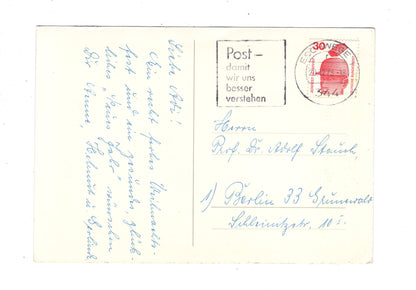 Liebe Ati!
Ein recht frohes Weihnachts-
fest und ein gesundes, glück-
liches "Neues Jahr" wünschen
Dir Anne, Helmut u. Gerlind
Post –
damit
wir uns
besser
verstehen
ESCHWEGE
344
30
Herrn
Prof. Dr. Adolf Stauch
1) Berlin 33 Grunewald
Schleinitzstr. 10 I.